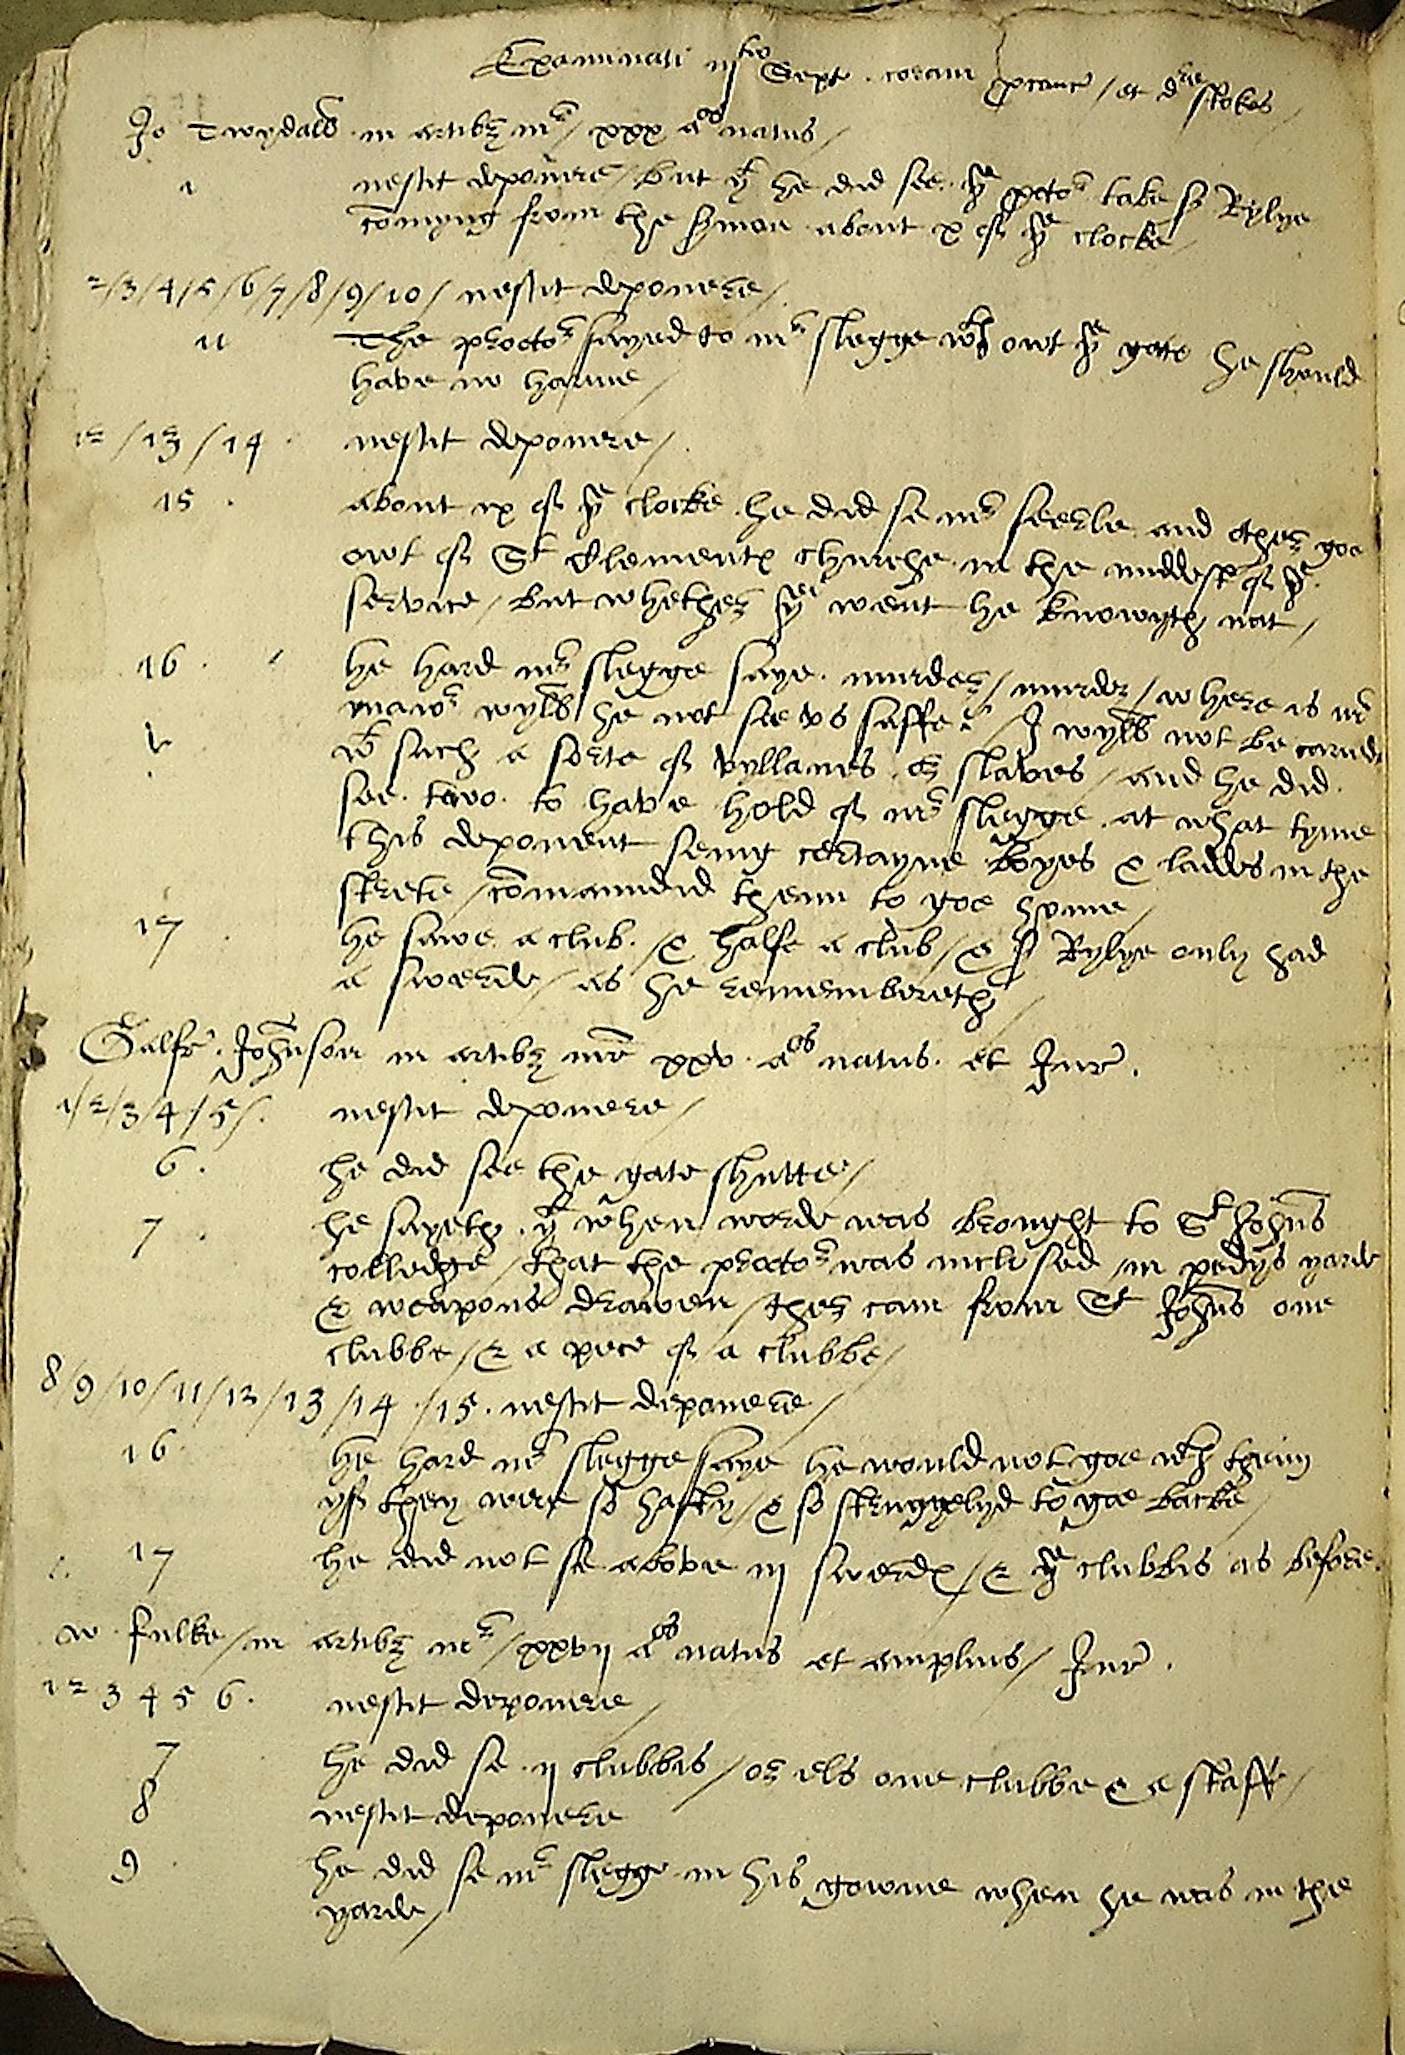 Examinati iijtio Sept. coram p'canc' / et dre stokes /
Jo Twydall in artibz mr / xxx aos natus /
1 nescit deponere / but yt he did see ye proctor take sr Rylye
comyng from the sermon about x of ye clocke
2/3/4/5/6/7/8/9/10/ nescit deponere /
11 The proctor sayed to mr slegge wth owt ye gate he should
have no harme /
12 / 13 / 14 . nescit deponere /
15 . about ix of ye clocke he did se mr seerle and other goe
owt of St Clementes churche in the middest of ye
service / but whether yei went he knowyth not /
16 . he hard mr slegge saye . murder / murder / where is mr
maior wyll he not see us saffe / I wyll not be caried
wt such a sorte of vyllanes & slaves / and he did
see two to have hold of mr slegge at what tyme
this deponent seing certayne boyes & laddes in the
strete / commaundid them to goe home /
17 he sawe a club / & halfe a club / & sr Rylye only had
a swerde / as he remembereth /
Galfr . Johnson in artibz mr xxv aos natus . et Jur .
1/2/3/4/5/. nescit deponere /
6 . he did see the gate shutte /
7 . he sayeth yt when worde was brought to St Johns
colledge / that the proctor was inclosed in pedys yarde
& weapons drawen / ther cam from St Johns one
clubbe / & a pece of a clubbe /
8/9/10/11/12/13/14/15 . nescit deponere /
16 he hard mr slegge saye he would not goe wth them
yf they were so hasty / & so struggelyd to goe backe /
17 he did not se above iij swerdes / & ye clubbis as before .
w . fulke / in artibz mr / xxvij aos natus et amplius / Jur .
1 2 3 4 5 6 . nescit deponere /
7 he did se ij clubbis / or els one clubbe & a staff /
8 nescit deponere
9 he did se mr slegge in his gowne when he was in the
yarde /